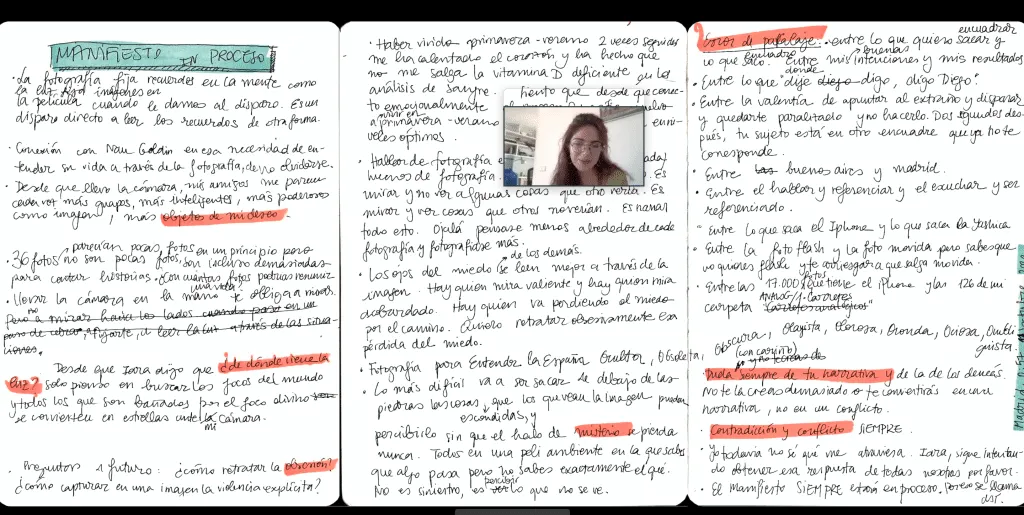 MANIFIESTO EN PROCESO
· La fotografía fija recuerdos en la mente como
la luz fija imágenes en
la película cuando le damos al disparo. Es un
disparo directo a leer los recuerdos de otra forma.
· Conexión con Nan Goldin en esa necesidad de en-
tender su vida a través de la fotografía, de no olvidarse.
· Desde que llevo la cámara, mis amigos me parecen
cada vez más guapos, más inteligentes, más poderosos
como imagen, más objetos de mi deseo.
parecían pocas fotos en un principio pero
· 36 fotos no son pocas fotos, son incluso demasiadas
para contar historias. ¿Con cuántas fotos podrías resumir
una vida?
· Llevar la cámara en la mano te obliga a mirar.
Pero no a mirar hacia los lados cuando paso en un
paso de cebra. Fijarte, a leer la luz a través de las situa-
ciones.
Desde que Iara dijo que ¿de dónde viene la
luz? solo pienso en buscar los focos del mundo
y todos los que son bañados por el foco divino
se convierten en estrellas ante mi cámara.
· Preguntas a futuro: ¿cómo retratar la obsesión?
¿cómo capturar en una imagen la violencia explícita?
· Haber vivido primavera-verano 2 veces seguidas
me ha alentado el corazón y ha hecho que
no me salga la vitamina D deficiente en los
análisis de sangre. Siento que desde que conec-
to emocionalmente
vivir en
a primavera-verano
veles óptimos.
· Hablar de fotografía
buenos de fotografía.
mirar y no ver algunas cosas que otro vería. Es
mirar y ver cosas que otros no verían. Es narrar
todo esto. Ojalá pensase menos alrededor de cada
fotografía y fotografiase más.
de los demás.
· Los ojos del miedo se leen mejor a través de la
imagen. Hay quien mira valiente y hay quien mira
acobardado. Hay quien va perdiendo el miedo
por el camino. Quiero retratar obsesivamente esa
pérdida del miedo.
· Fotografía para Entender la España Ocultor, Obsoleta,
Obscura, Olagista, Olorosa, Oronda, Ociosa, Ombli
guista.
(con cariño)
· Lo más difícil va a ser sacar de debajo de las
piedras las cosas, que los que vean la imagen puedan
escondidas, y
percibirlo sin que el halo de misterio se pierda
nunca. Todos en una peli ambiente en la que sabes
que algo pasa pero no sabes exactamente el qué.
percibir
No es siniestro, es ver lo que no se ve.
Error de paralaje: entre lo que quiero sacar y
encuadrar
lo que saco. Entre mis buenas intenciones y mis resultados
encuadro
· Entre lo que "dije donde diego digo, digo Diego".
· Entre la valentía de apuntar al extraño y disparar
y quedarte paralitado y no hacerlo. Dos segundos des-
pués, tu sujeto está en otro encuadre que ya no te
corresponde.
· Entre las buenos aires y madrid.
· Entre el hablar y referenciar y el escuchar y ser
referenciado.
· Entre lo que saca el Iphone y lo que saca la Yashica
· Entre la foto flash y la foto movida pero sabes que
no quieres flash y te arriesgas a que salga movida.
· Entre las 17.000 fotos que tiene el iPhone y las 126 de mi
carpeta
Duda siempre de tu narrativa y de la de los demás.
No te la creas demasiado o te convertirás en una
narrativa, no en un conflicto.
· Contradicción y conflicto SIEMPRE.
· Yo todavía no sé qué me atraviesa. Iara, sigue intentan-
do obtener esa respuesta de todas nosotras por favor.
· El manifiesto SIEMPRE estará en proceso. Por eso se llama
así.